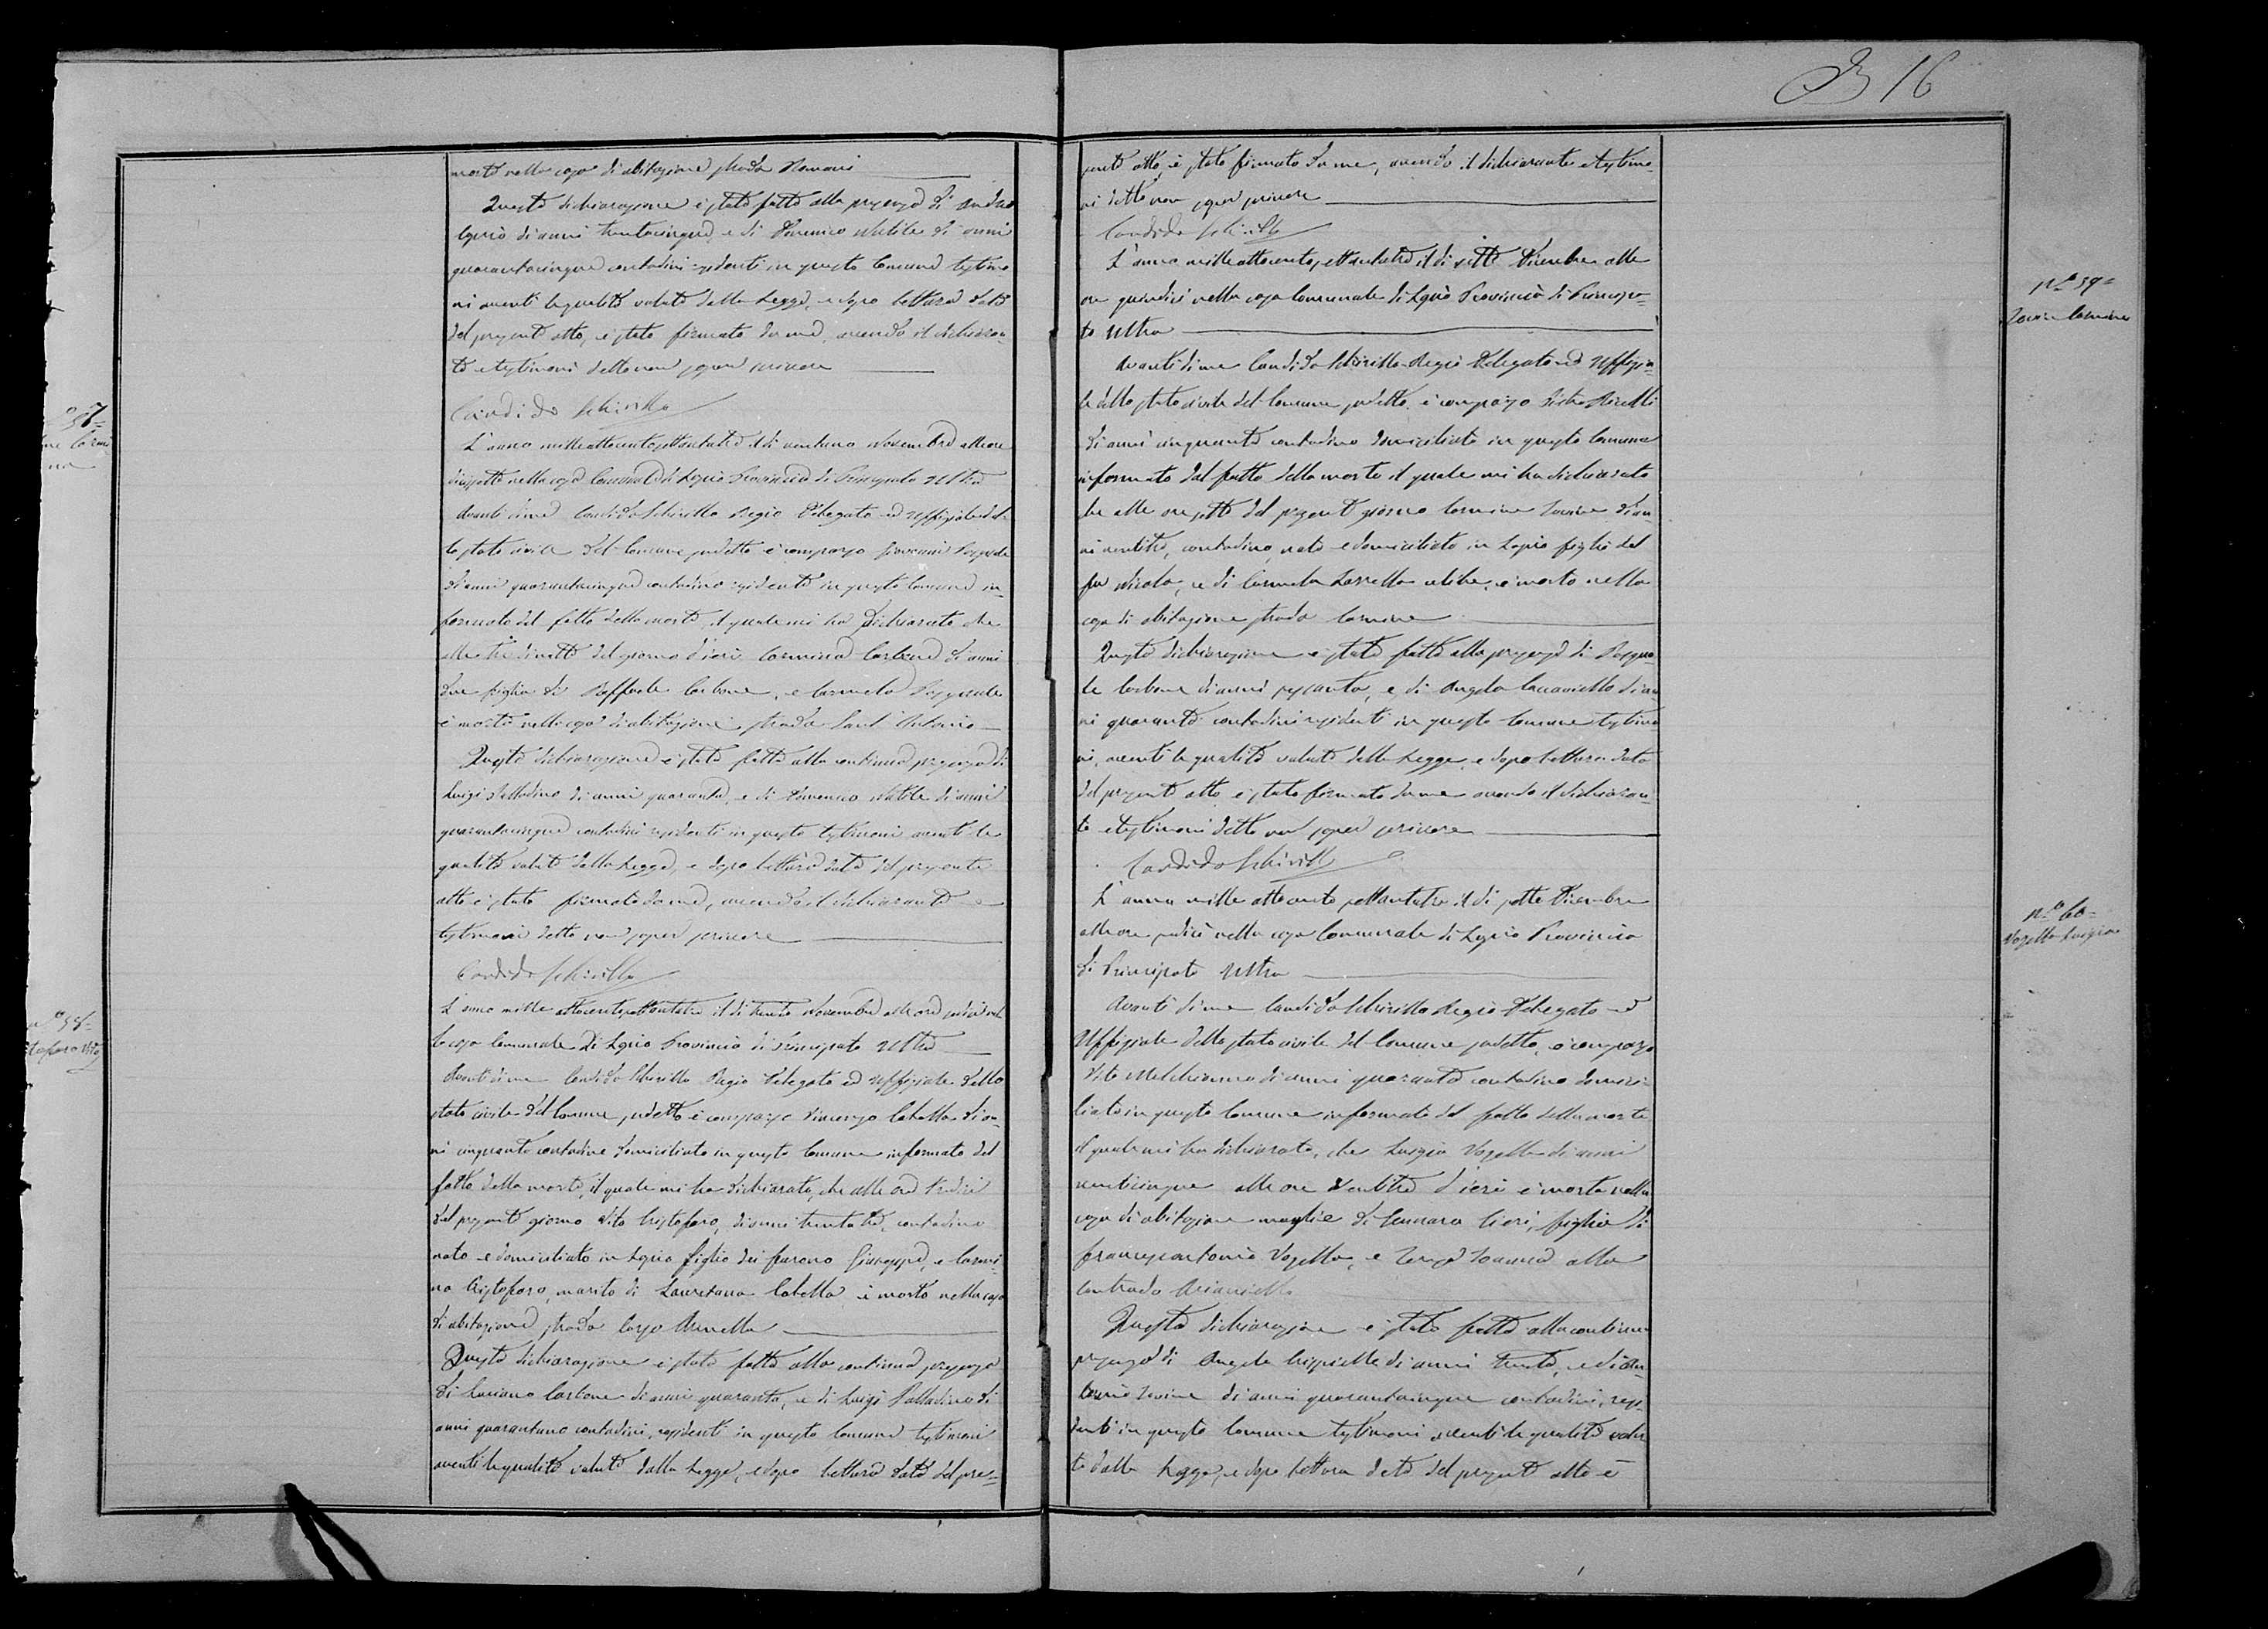 B 16
morto nella casa di abitazione strada Romani
Questa dichiarazione è stata fatta alla presenza di Andrea
Iapicò di anni trentacinque, e di Domenico Natile di anni
quarantacinque contadini residenti in questo Comune testimo
ni aventi le qualità volute dalla Legge, e dopo lettura data
del presente atto, è stato firmato da me, avendo il dichiaran-
te e testimoni detto non saper scrivere
Candido Schirillo
N° 57=
ne Carmi
na
L'anno milleottocentosettantatre il dì ventuno Novembre alle ore
diciassette nella casa Comunale di Lapio Provincia di Principato Ultra
Avanti di me Candido Schirillo Regio Delegato ed Uffiziale del-
lo stato civile del Comune sudetto è comparso Giovanni Pasquale
di anni quarantacinque contadino residente in questo Comune in-
formato del fatto della morte, il quale mi ha dichiarato che
alle tre di notte del giorno d'ieri Carmina Carbone di anni
due figlia di Raffaele Carbone, e Carmela Pasquale
è morta nella casa di abitazione strada Sant'Antonio
Questa dichiarazione è stata fatta alla continua presenza di
Luigi Palladino di anni quaranta, e di Domenico Natile di anni
quarantacinque contadini residenti in questo testimoni aventi le
qualità volute dalla Legge, e dopo lettura data del presente
atto è stato firmato da me, avendo il dichiarante e
testimoni detto non saper scrivere
Candido Schirillo
N° 58=
stoforo Vito
L'anno mille ottocentosettantatre il dì trenta Novembre alle ore sedici nel
la casa Comunale di Lapio Provincia di Principato Ultra
Avanti di me Candido Schirillo Regio Delegato ed Uffiziale dello
stato civile del Comune sudetto è comparso Vincenzo Cabella di an-
ni cinquanta contadino domiciliato in questo Comune informato del
fatto della morte, il quale mi ha dichiarato, che alle ore tredici
del presente giorno Vito Cristoforo, di anni trentatre, contadino
nato e domiciliato in Lapio figlio dei furono Giuseppe, e Carmi-
na Cristoforo, marito di Lauretana Cabella è morto nella casa
di abitazione strada largo Arenella
Questa dichiarazione è stata fatta alla continua presenza
di Luciano Carbone di anni quaranta, e di Luigi Palladino di
anni quarantuno contadini, residenti in questo Comune testimoni
aventi le qualità volute dalla Legge, e dopo lettura data del pre-
sente atto, è stato firmato da me, avendo il dichiarante e testimo-
ni detto non saper scrivere
Candido Schirillo
N° 59=
Iovine Carmine
L'anno milleottocentosettantatre il dì sette Dicembre alle
ore quindici nella casa Comunale di Lapio Provincia di Principa-
to Ultra
Avanti di me Candido Schirillo Regio Delegato ed Uffizia-
le dello stato civile del Comune sudetto, è comparso Pietro
di anni cinquanta contadino domiciliato in questo Comune
informato del fatto della morte il quale mi ha dichiarato
che alle ore sette del presente giorno Carmine Iovine di an-
ni ventitre, contadino, nato e domiciliato in Lapio figlio del
fu Nicola, e di Carmela celibe, è morto nella
casa di abitazione strada Carmine
Questa dichiarazione è stata fatta alla presenza di Pasqua-
le Carbone di anni sessanta, e di Angelo Caccaviello di an
ni quaranta contadini residenti in questo Comune testimo
ni, aventi le qualità volute dalla Legge, e dopo lettura data
del presente atto è stato firmato da me avendo il dichiaran-
te e testimoni detto non saper scrivere
Candido Schirillo
N° 60=
Vozella Luigia
L'anno mille ottocento settantatre il dì sette Dicembre
alle ore sedici nella casa Comunale di Lapio Provincia
di Principato Ultra
Avanti di me Candido Schirillo Regio Delegato ed
Uffiziale dello stato civile del Comune sudetto, è comparso
Vito Melchionna di anni quaranta contadino domici-
liato in questo Comune informato del fatto della morte
il quale mi ha dichiarato, che Luigia Vozella di anni
venticinque alle ore ventitre d'ieri è morta nella
casa di abitazione moglie di Gennaro figlia di
Francescantonio Vozella, e Teresa alla
contrada Arianiello
Questa dichiarazione è stata fatta alla continua
presenza di Angelo di anni trenta, e di An-
tonio Iovine di anni quarantacinque contadini, resi-
denti in questo Comune testimoni aventi le qualità volu
te dalla Legge, e dopo lettura data del presente atto è